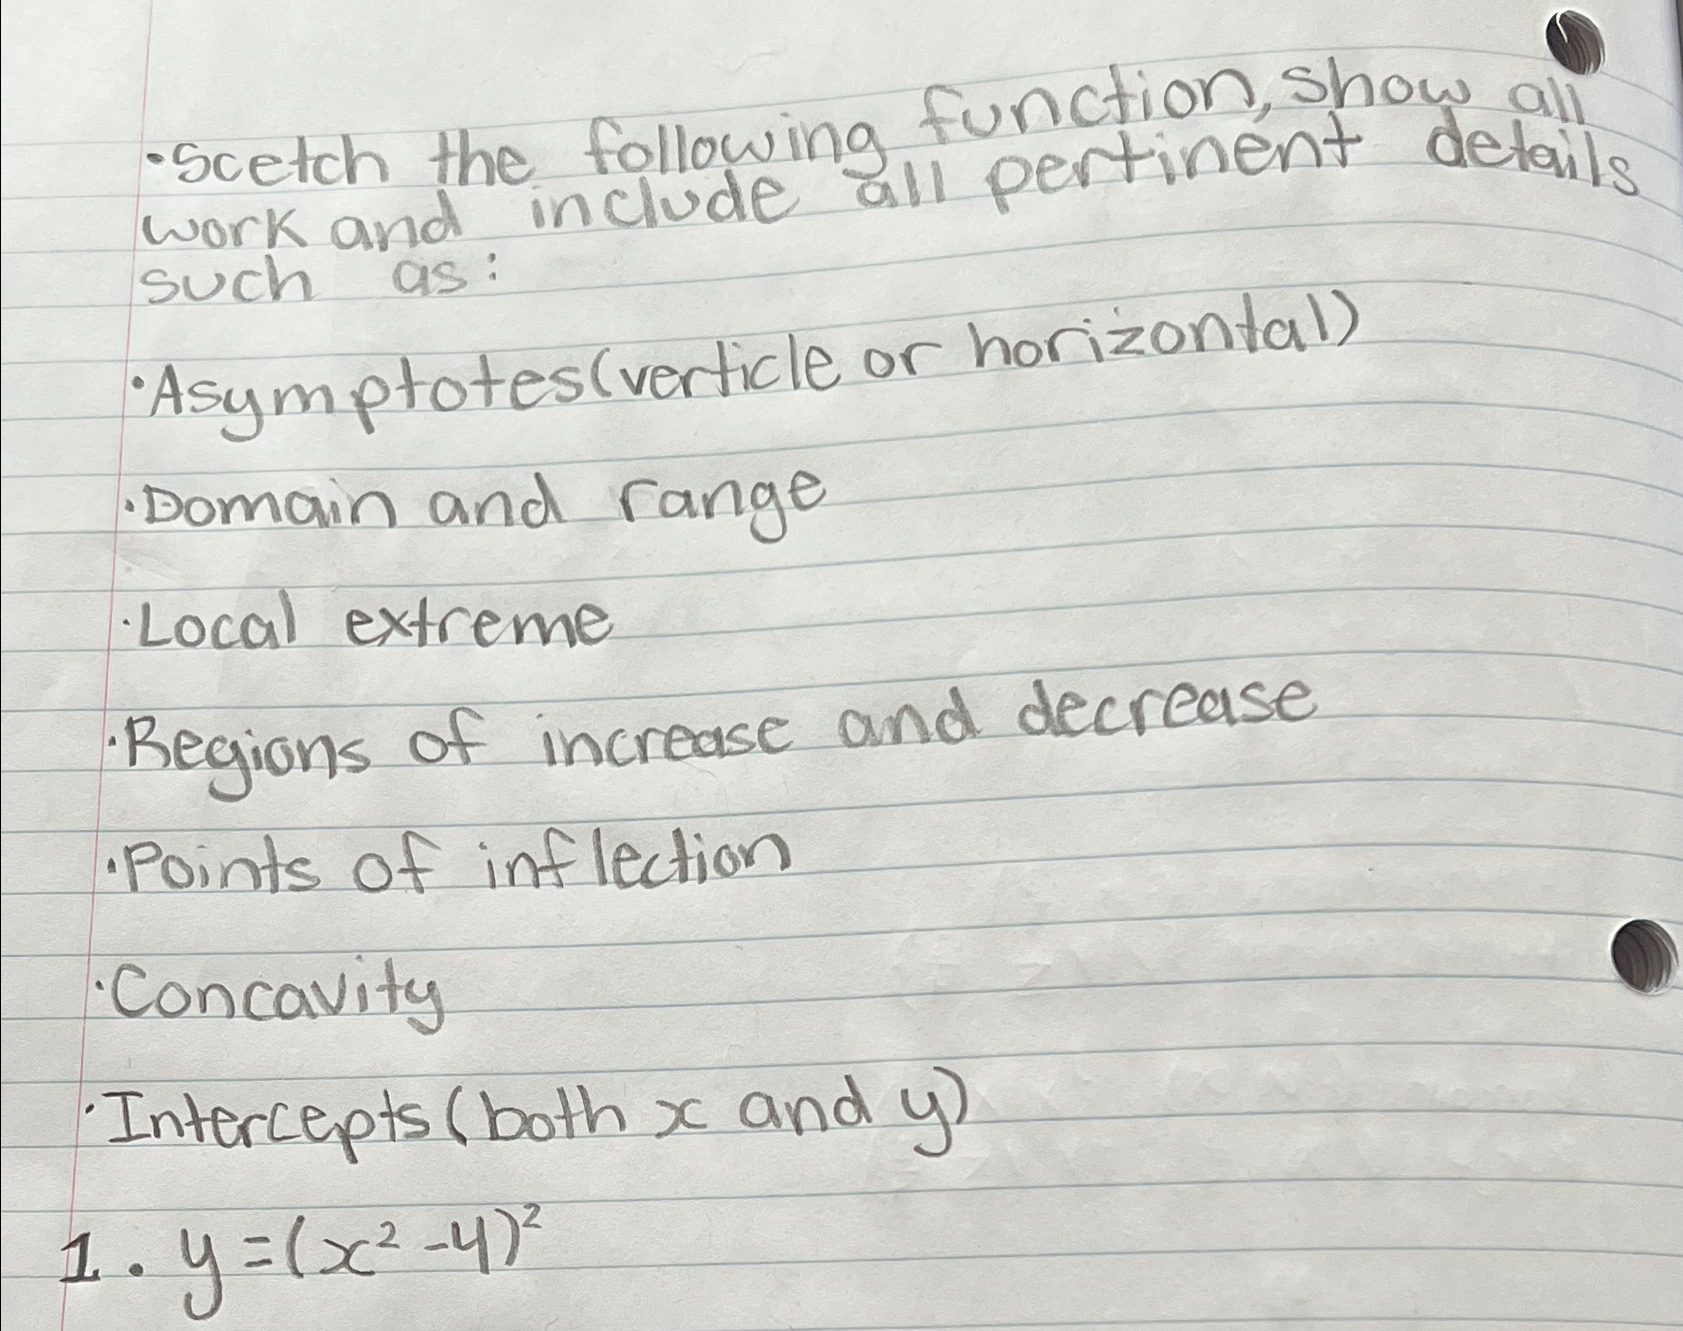 ·Scetch the following function, show all
work and include all pertinent details
such as:
·Asymptotes(verticle or horizontal)
·Domain and range
·Local extreme
·Regions of increase and decrease
·Points of inflection
·Concavity
·Intercepts(both x and y)
1. y=(x²-4)²